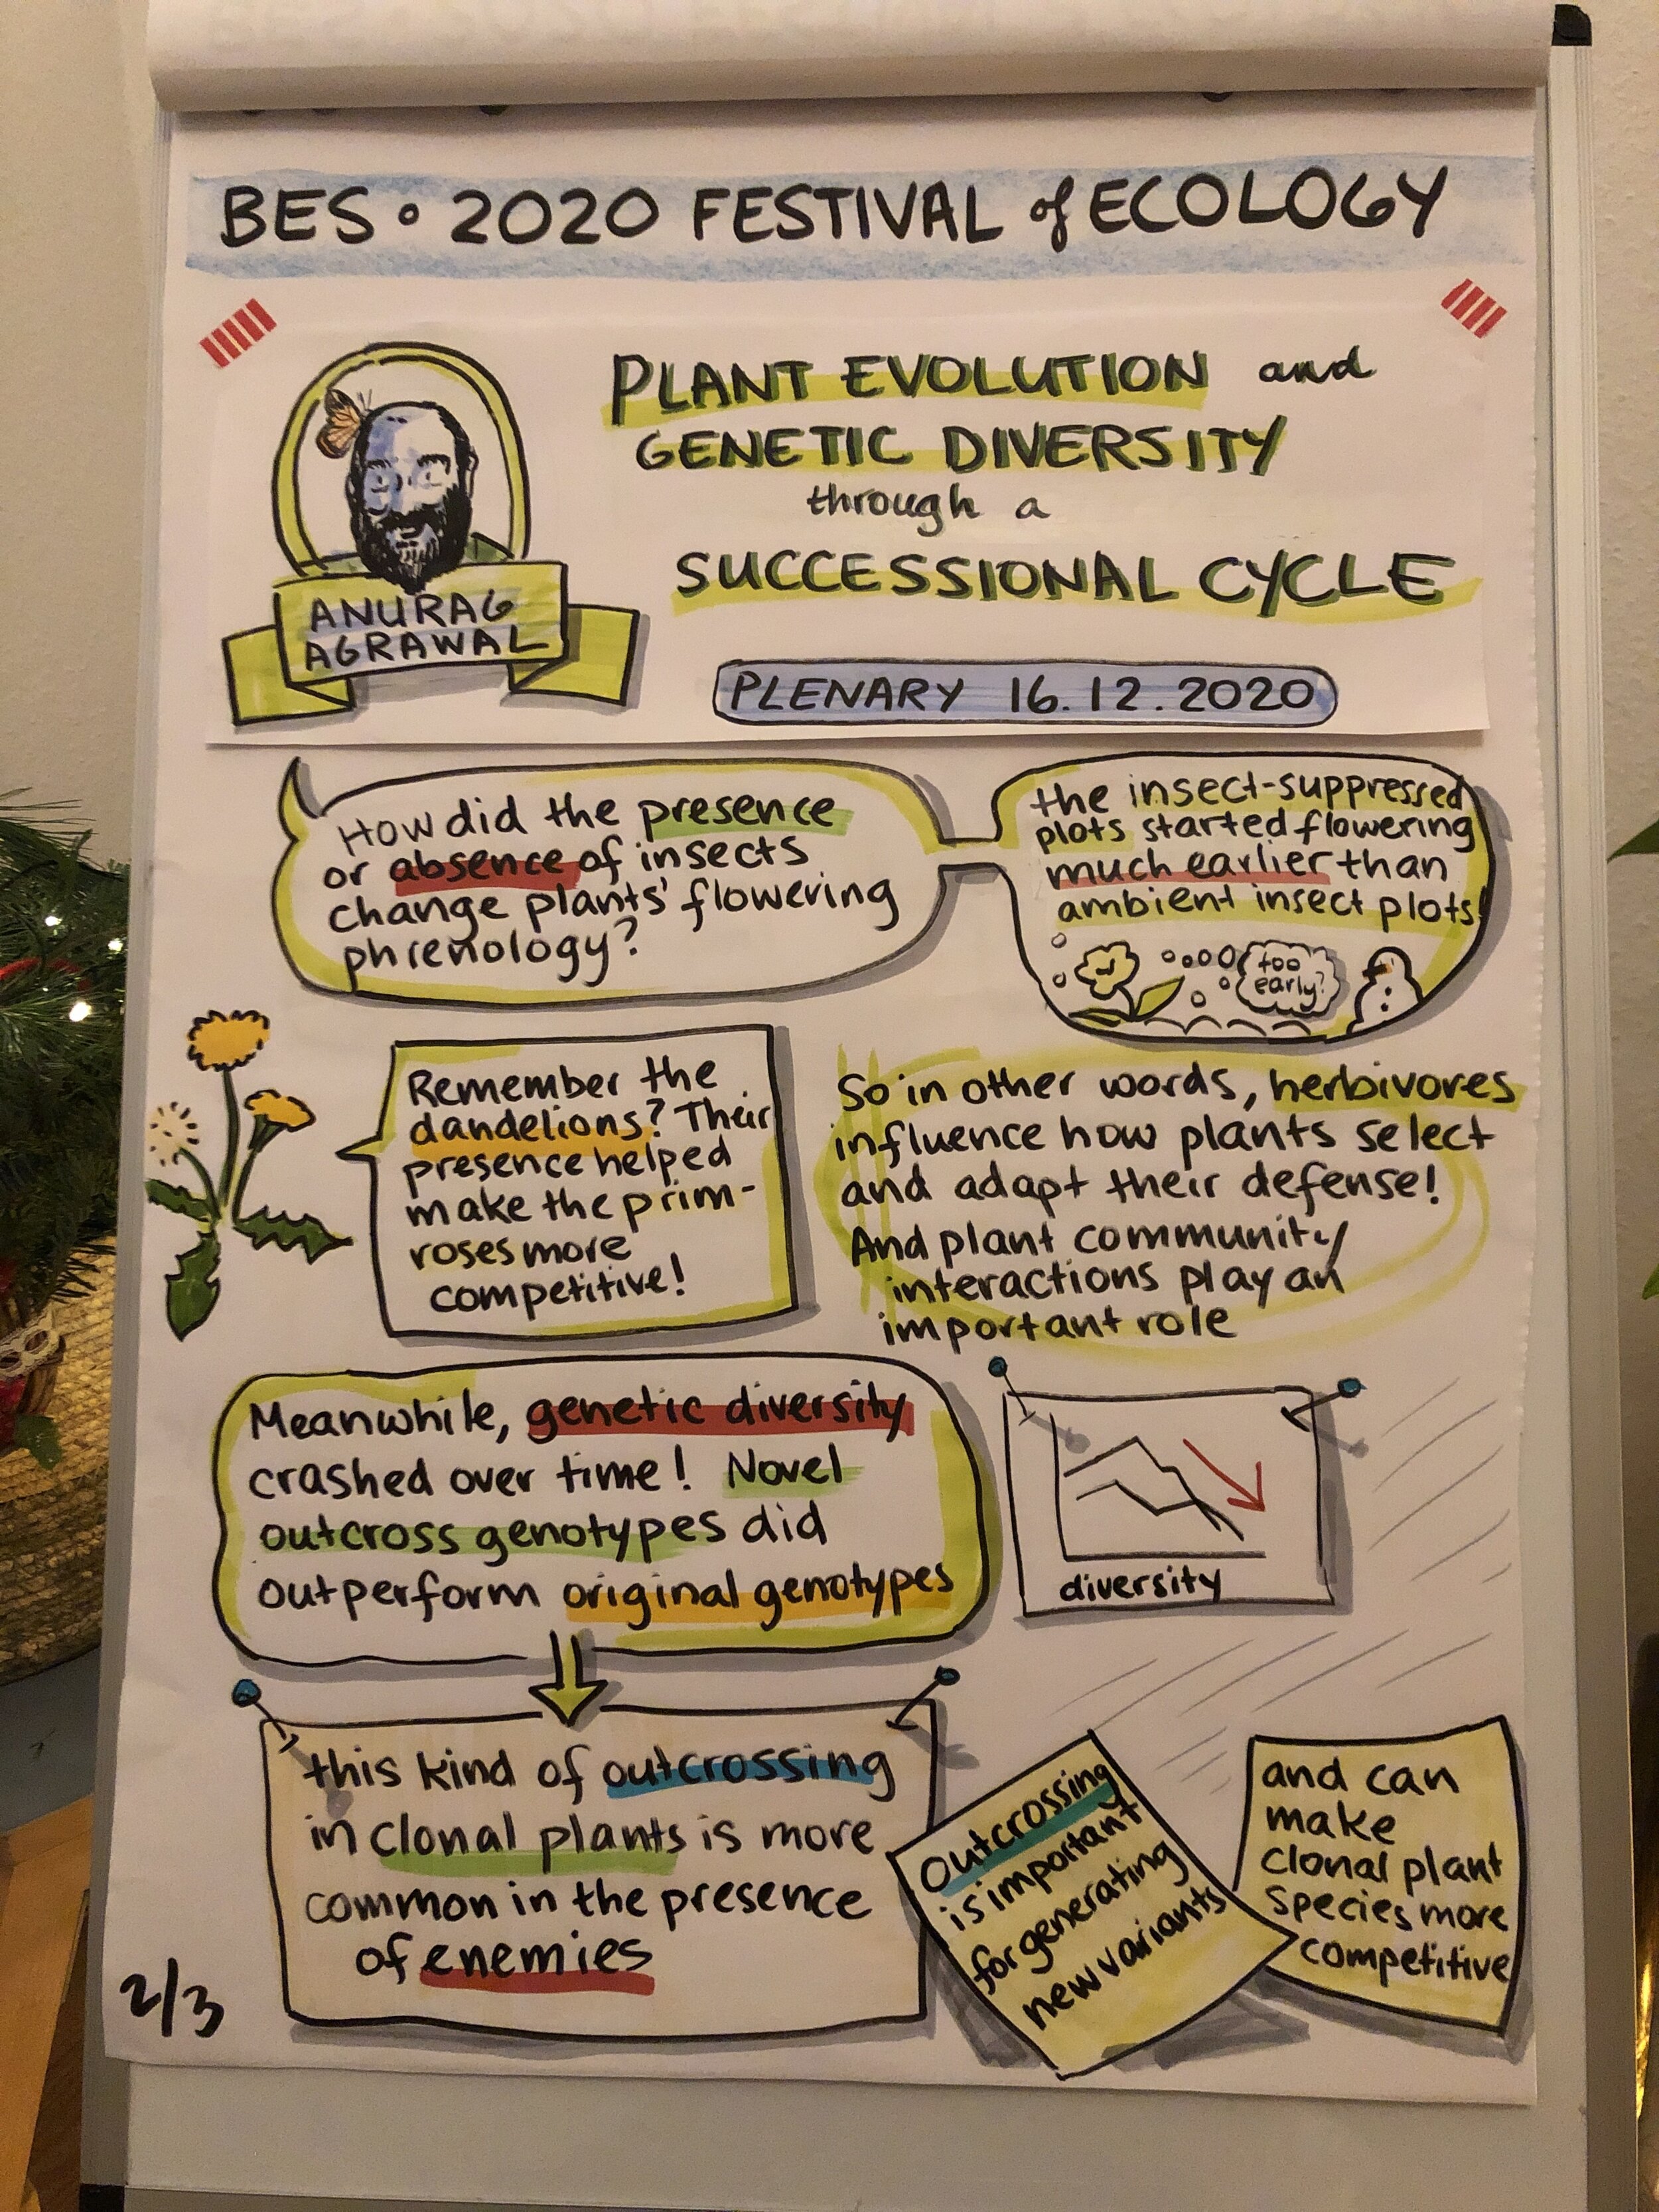 BES • 2020 FESTIVAL of ECOLOGY
PLANT EVOLUTION and
GENETIC DIVERSITY
through a
SUCCESSIONAL CYCLE
ANURAG
AGRAWAL
PLENARY 16.12.2020
How did the presence
or absence of insects
change plants' flowering
phrenology?
the insect-suppressed
plots started flowering
much earlier than
ambient insect plots!
too
early?
Remember the
dandelions? Their
presence helped
make the prim-
roses more
competitive!
So in other words, herbivores
influence how plants select
and adapt their defense!
And plant community
interactions play an
important role
Meanwhile, genetic diversity
crashed over time! Novel
outcross genotypes did
outperform original genotypes
diversity
this kind of outcrossing
in clonal plants is more
common in the presence
of enemies
Outcrossing
is important
for generating
new variants
and can
make
clonal plant
species more
competitive
2/3